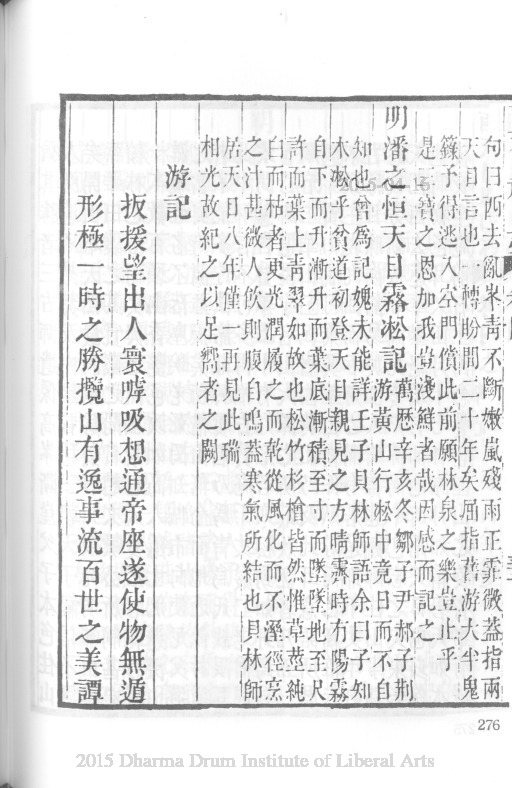 句日西去亂峯青不斷嫩嵐殘雨正霏微蓋指兩
天目言也一轉盼間二十年矣屈指舊游大半鬼
籙予得逃入空門償此前願林泉之樂豈止乎
是三寶之恩加我豈淺鮮者哉因感而記之
明潘之恒天目霧凇記萬歷辛亥冬鄒子尹郝子荆
游黃山行凇中竟日而不自
知也曾爲記媿未能詳壬子貝林師語余曰子知
木凇乎貧道初登天目親見之方晴霽時有陽霧
自下而升漸升而葉底漸積至寸而墜墜地至尺
許而葉上靑翠如故也松竹杉檜皆然惟草莖純
白而枯者更光潤履之而乾從風化而不溼徑烹
之汁甚微人飲則腹自鳴蓋寒氣所結也貝林師
居天目八年僅一再見此瑞
相光故紀之以足嚮者之闕
游記
扳援望出人寰嘑吸想通帝座遂使物無遁
形極一時之勝攬山有逸事流百世之美譚
276
2015-04-16
2015 Dharma Drum Institute of Liberal Arts